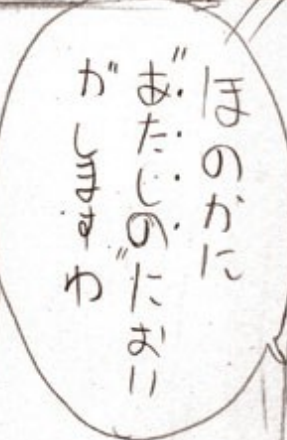 ほのかに
"あたしの"におい
がしますわ